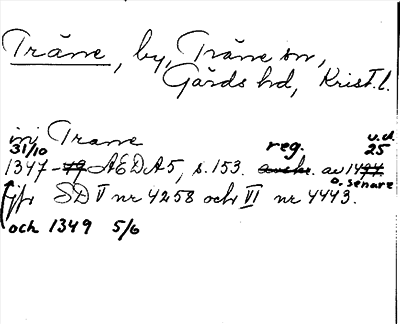 Träne, by, Träne sn,
Gärds hd, Krist. l.
inj Trane
31/10 reg. u.d. 25
1347 - 79 AEDA5, s. 153. avskr. av 1494 o. senare
(jfr SD V nr 4258 och VI nr 4443.
och 1349 5/6